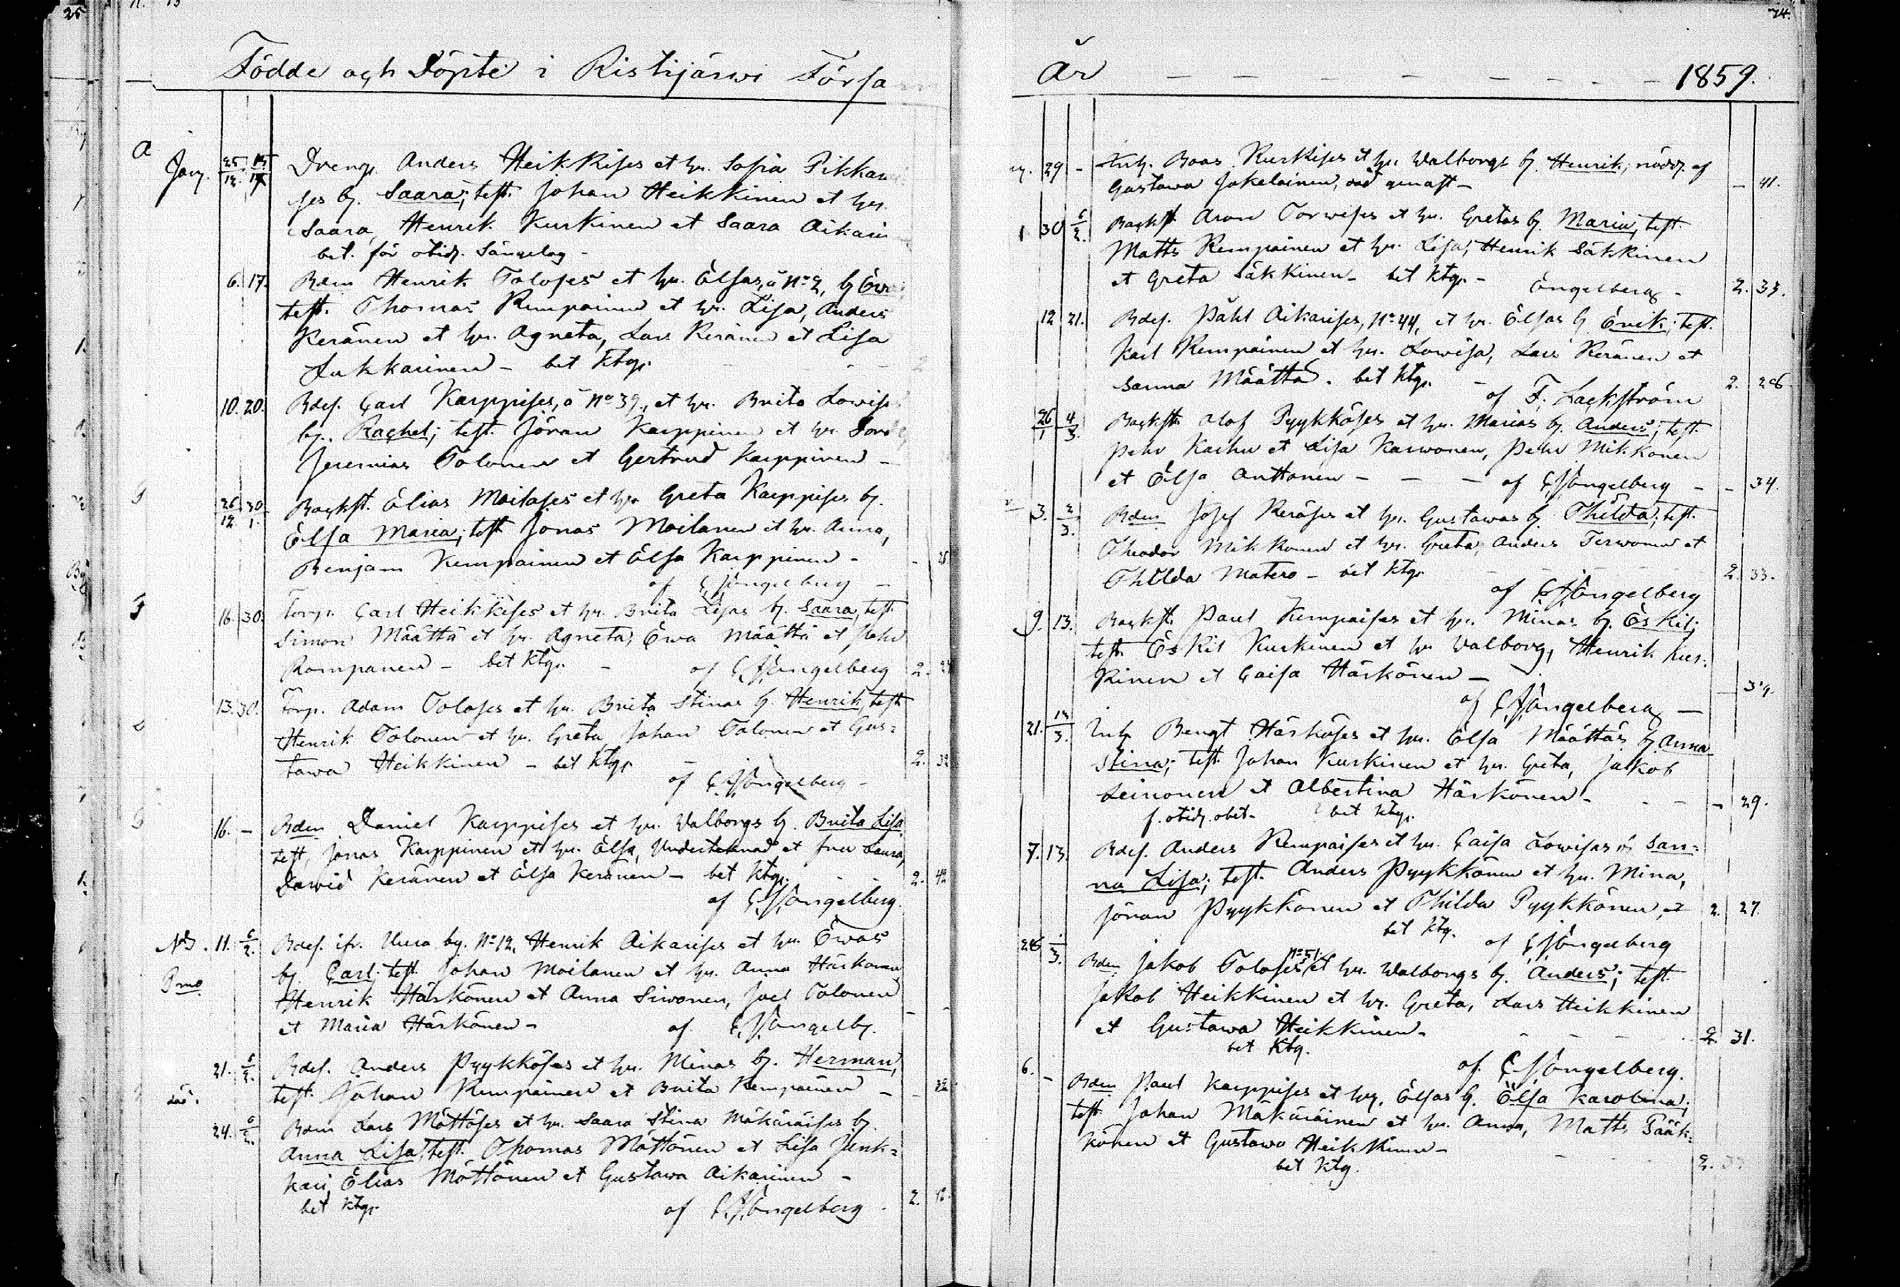 25
Födde och Döpte i Ristijärwi Försa
Jan. 25/12 15/17 Dreng. Anders Heikkises et hu. Sofia Pikkarai
ses b. Saara; test. Johan Heikkinen et hu.
Saara, Henrik Kurkinen et Saara Aikari
bet. för otid. Sängelag -
6. 17. Bdem Henrik Toloses et hu. Elsas, å No 2, b. Ewa
test. Thomas Kempainen et hu. Lisa, Anders
Keränen et hu. Agneta, Lars Keränen et Lisa
Lukkarinen - bet ktg.
10. 20. Bdes. Carl Karppises, å No 39, et hu. Brita Lowises
b. Rachel; test. Jöran Karppinen et hu.
Jeremias Tolonen et Gertrud Karppinen -
26/12 30/1. Backst. Elias Moilases et hu. Greta Karppises b.
Elsa Maria; test. Jonas Moilanen et hu. Anna,
Benjam Kempainen et Elsa Karppinen -
of C. J. Engelberg -
16. 30. Torp. Carl Heikkises et hu. Brita Lisas b. Saara, test.
Simon Määttä et hu. Agneta, Ewa Määttä et Pehr
Kompanen - bet ktg. - of C. J. Engelberg 2.
13. 30. Torp. Adam Toloses et hu. Brita Stinas b. Henrik, test.
Henrik Tolonen et hu. Greta, Johan Tolonen et Gus=
tawa Heikkinen - bet ktg. 2.
of C. J. Engelberg -
16. - Bdem Daniel Karppises et hu. Walborgs b. Brita Lisa,
test, Jonas Karppinen et hu. Elsa, Undertecknad et fru Laura,
Dawid Keränen et Elsa Keränen - bet ktg. 2. 42
of C. J. Engelberg.
11. 6/2. Bdes. ifr. Uura by. No 12, Henrik Aikarises et hu. Ewas
b. Carl; test. Johan Moilanen et hu. Anna Härkönen
Henrik Härkönen et Anna Siwonen, Joel Tolonen
et Maria Härkönen - of C. J. Engelbg.
21. 6/2. Bdes. Anders Pyykköses et hu. Minas b. Herman,
test. Johan Kempainen et Brita Kempainen -
24. 6/2. Bdem Lars Möttöses et hu. Saara Stina Mäkäräises b.
Anna Lisa; test. Thomas Möttönen et Lisa Junk=
kari, Elias Möttönen et Gustawa Aikarinen -
bet ktg. of C. J. Engelberg. 2.
År - - - 1859.
29 - Inh. Boas Kurkises et hu. Walborgs b. Henrik; nöddöpt af
Gustawa Jokelainen, - 41.
30 6/2. Backst. Aron Torwises et hu. Gretas b. Maria; test.
Matts Kempainen et hu. Lisa, Henrik Säkkinen
et Greta Säkkinen - bet ktg. - Engelberg - 2. 33.
12 21. Bdes. Påhl Aikarises, No 44, et hu. Elsas b. Erik; test.
Karl Kempainen et hu. Lowisa, Lars Keränen et
Sanna Määttä. bet ktg. - 2. 26
of F. Lackström
26/1 4/3. Backst. Olof Pyykköses et hu. Marias b. Anders; test.
Pehr Karhu et Lisa Karwonen, Pehr Mikkonen
et Elsa Anttonen - - - of C. J. Engelberg - - 34.
3. 2/3. Bdem Josef Keräses et hu. Gustawas b. Thilda; test.
Theodor Mikkonen et hu. Greta, Anders Terwonen et
Thilda Matero - bet ktg. 2. 33.
of C. J. Engelberg
9. 13. Backst. Paul Kempaises et hu. Minas b. Eskil;
test. Eskil Kurkinen et hu. Walborg, Henrik Kur=
kinen et Caisa Härkönen -
of C. J. Engelberg -
21. 13/3. Inh. Bengt Härköses et hu. Elsa Määttäs b. Anna
Stina; test. Johan Kurkinen et hu. Greta, Jakob
Leinonen et Albertina Härkönen - - 29.
f. otid. obet. - bet ktg.
7. 13. Bdes. Anders Kempaises et hu. Caisa Lowisas b. San=
na Lisa; test. Anders Pyykkönen et hu. Mina,
Jöran Pyykkönen et Thilda Pyykkönen, et 2. 27.
bet ktg. of C. J. Engelberg
28 1/3. Bdem Jakob Toloses No 51 et hu. Walborgs b. Anders; test.
Jakob Heikkinen et hu. Greta, Lars Heikkinen
et Gustawa Heikkinen - 2. 31.
bet ktg.
of C. J. Engelberg.
6. - Bdem Paul Karppises et hu. Elsas b. Elsa Karolina;
test. Johan Mäkäräinen et hu. Anna, Matts Pääk=
könen et Gustawa Heikkinen -
bet ktg.